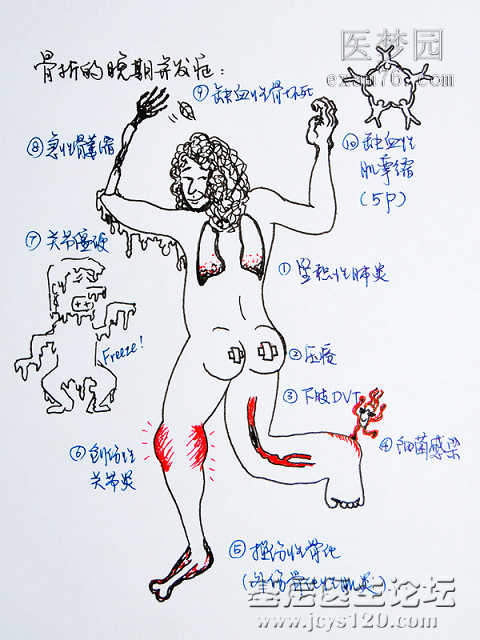 医梦园
exam76.com
骨折的晚期并发症:
⑨缺血性骨坏死
⑧急性骨萎缩
⑩缺血性
肌挛缩
(5P)
⑦关节僵硬
①坠积性肺炎
Freeze!
②压疮
③下肢DVT
④细菌感染
⑥创伤性
关节炎
⑤损伤性骨化
(
骨化性肌炎)
基层医生论坛
www.jcys120.com